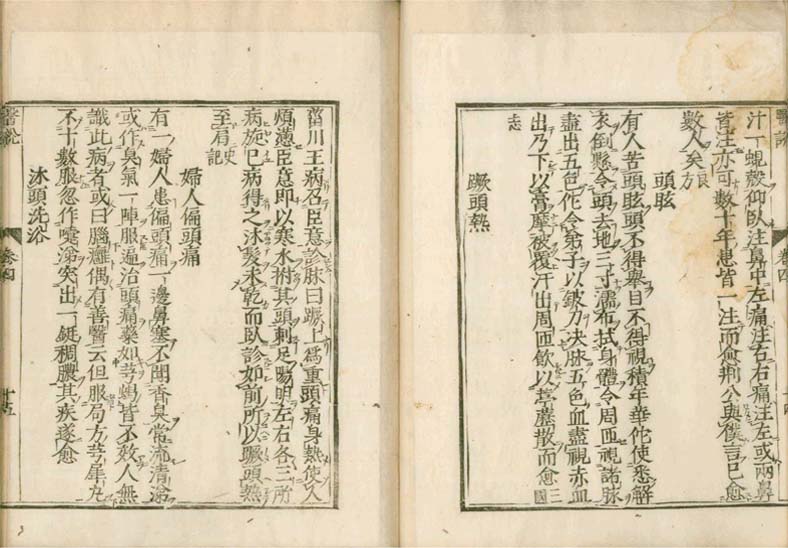 汁一蜆殼仰臥注鼻中左痛注右右痛注左或兩鼻
皆注亦可數十年患皆一注而愈荊公與僕言已愈
數人矣良方
頭眩
有人苦頭眩頭不得舉目不得視積年華佗使悉解
衣倒懸令頭去地三寸濡布拭身體令周匝視諸脉
盡出五色佗令弟子以鈹刀决脉五色血盡視赤血
出乃下以膏摩被覆汗出周匝飲以葶藶散而愈三國
志
蹶頭熱
菑川王病召臣意診脉曰蹶上爲重頭痛身熱使人
煩懣臣意即以寒水拊其頭刺足陽明左右各三所
病旋已病得之沐髮未乾而臥診如前所以蹶頭熱
至肩史記
婦人偏頭痛
有一婦人患偏頭痛一邊鼻塞不聞香臭常流清涕
或作臭氣一陣服遍治頭痛藥如芎蝎皆不效人無
識此病者或曰腦癰偶有善醫云但服局方芎犀丸
不十數服忽作嚏涕突出一鋌稠膿其疾遂愈
沐頭洗浴
醫說
卷四
十五